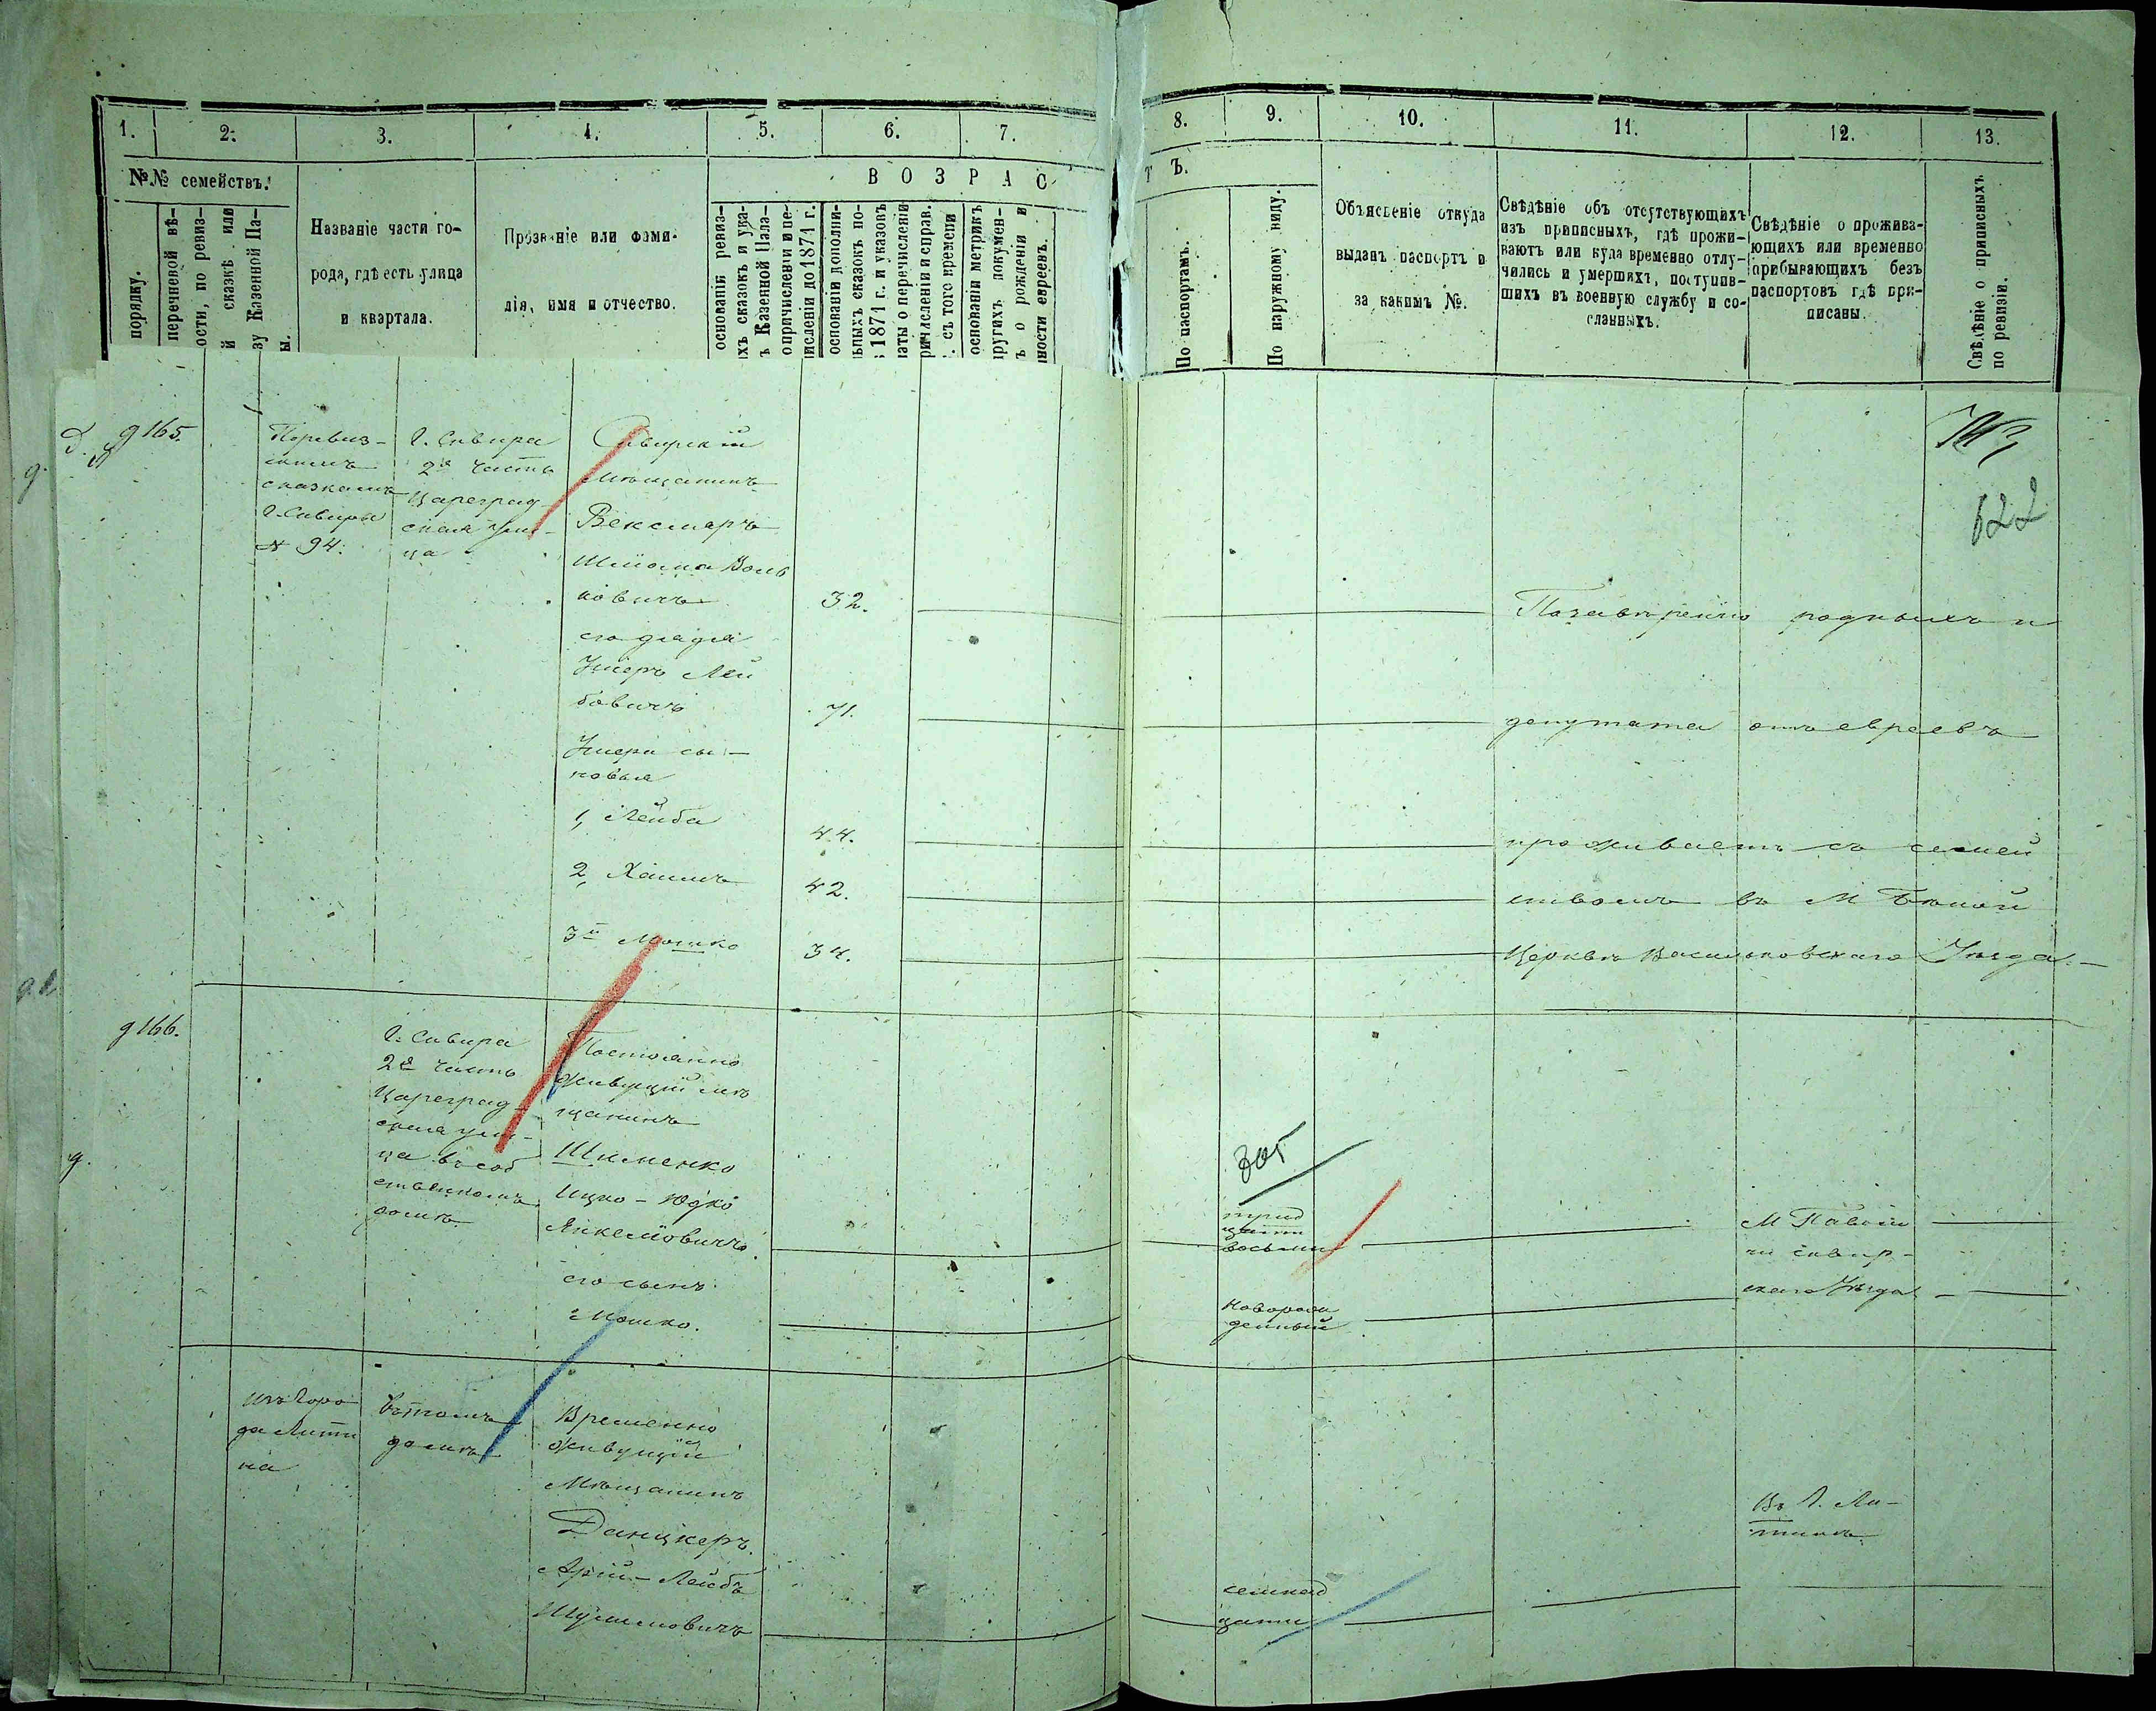 1.
2.
3.
4.
5.
6.
7.
8.
9.
10.
11.
12.
13.
№№ семействъ.
В О З Р А С
Т Ъ.
порядку.
перечневой вѣ-
ости, по ревиз-
й сказкѣ или
зу Казенной Па-
ы.
Названіе части го-
рода, гдѣ есть улица
и квартала.
Прозваніе или фами-
лія, имя и отчество.
основаніи ревиз-
хъ сказокъ и ука-
ъ Казенной Пала-
о причисленіи и пе-
исленіи до 1871 г.
основаніи дополни-
льныхъ сказокъ по-
1871 г. и указовъ
латы о перечисленіи
ричисленіи и справ.
съ того времени
основаніи метрикъ
другихъ докумен-
ъ о рожденіи и
ности евреевъ.
По паспортамъ.
По наружному виду.
Объясненіе откуда
выданъ паспортъ и
за какимъ №.
Свѣдѣніе объ отсутствующихъ
изъ приписныхъ, гдѣ прожи-
ваютъ или куда временно отлу-
чились и умершихъ, поступив-
шихъ въ военную службу и со-
сланныхъ.
Свѣдѣніе о прожива-
ющихъ или временно
прибывающихъ безъ
паспортовъ гдѣ при-
писаны.
Свѣдѣніе о приписныхъ
по ревизіи.
9165.
По ревиз-
скимъ
сказкамъ
Г. Сквиры
№ 94.
Г. Сквира
2я часть
Цареград-
ская ули-
ца
Сквирскій
мѣщанинъ
Векслеръ
Шлiома Воль
ковичъ
32.
его дядя
Умеръ Лей
бовичъ
71.
Умера сы-
новья
1, Лейба
44.
2, Хаимъ
42.
3й Мошко
34.
По завѣренію родныхъ и
депутата отъ евреевъ
проживаетъ съ семей
ствомъ въ М Бѣлой
Церквѣ Васильковскаго Уѣзда.
622
9166.
Г. Сквира
2я часть
Цареград-
ская ули-
ца въ соб
ственномъ
домѣ
Постоянно
живущій мѣ
щанинъ
Шименко
Ицко-Юдко
Янкелiовичъ.
его сынъ
Мошко.
305
трид
цати
восьми
новорож
денный
М Паволо
чи сквир-
скаго Уѣзда
изъ Горо
да Лити
на
въ томъ
домѣ
Временно
живущій
Мѣщанинъ
Данцкеръ
Арій-Лейбъ
Шулимовичъ
семнад
цати
Въ Г. Ли-
тинѣ